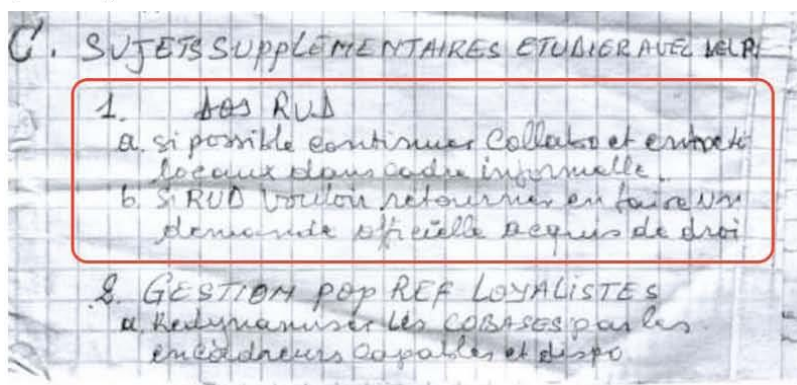 C. SUJETS SUPPLÉMENTAIRES ETUDIER AVEC
1. DOS RUD
a. si possible continuer Collabo et
locaux dans cadre informelle.
b. Si RUD vouloir retourner en faire une
demande officielle acquis de droi
2. GESTION POP REF LOYALISTES
a. Redynamiser les COBASES par les
encadreurs capables et dispo